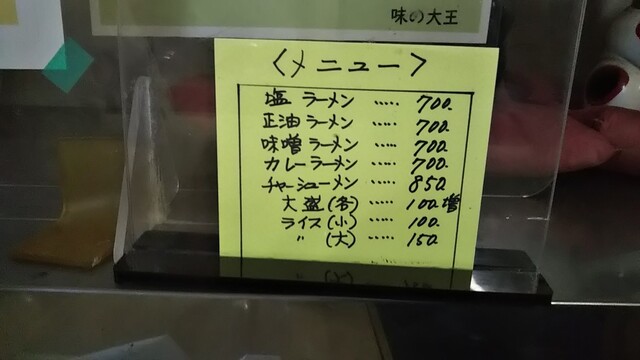 味の大王
〈メニュー〉
塩ラーメン ‥‥‥ 700.
正油ラーメン ‥‥‥ 700.
味噌ラーメン ‥‥‥ 700.
カレーラーメン ‥‥‥ 700.
チャーシューメン ‥‥‥ 850.
大盛(各) ‥‥‥ 100増
ライス(小) ‥‥‥ 100.
〃 (大) ‥‥‥ 150.